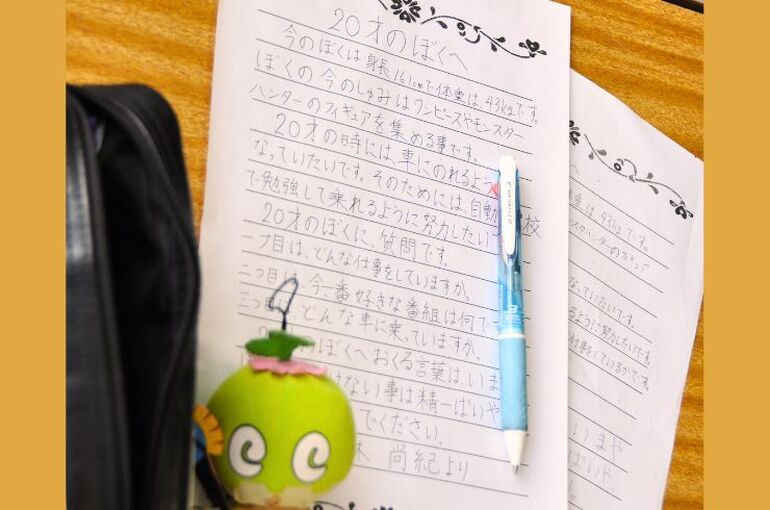 20才のぼくへ
今のぼくは身長161cmで体重は、43kgです。
ぼくの今のしゅみはワンピースやモンスター
ハンターのフィギュアを集める事です。
20才の時には、車にのれるよう
なっていたいです。そのためには、自動 校
で勉強して乗れるように努力したい
20才のぼくに、質問です。
一つ目は、どんな仕事をしていますか。
二つ目は、今、一番好きな番組は何で
三つ目は、どんな車に乗っていますか。
のぼくへおくる言葉は、いま
ない事は精一ぱいや
でください。
木 尚紀より
重は、43kgです。
スタハンターのフィギュア
なっていたいです。
るように努力したいです。
仕事をしているかです。
いまや
ぱいや